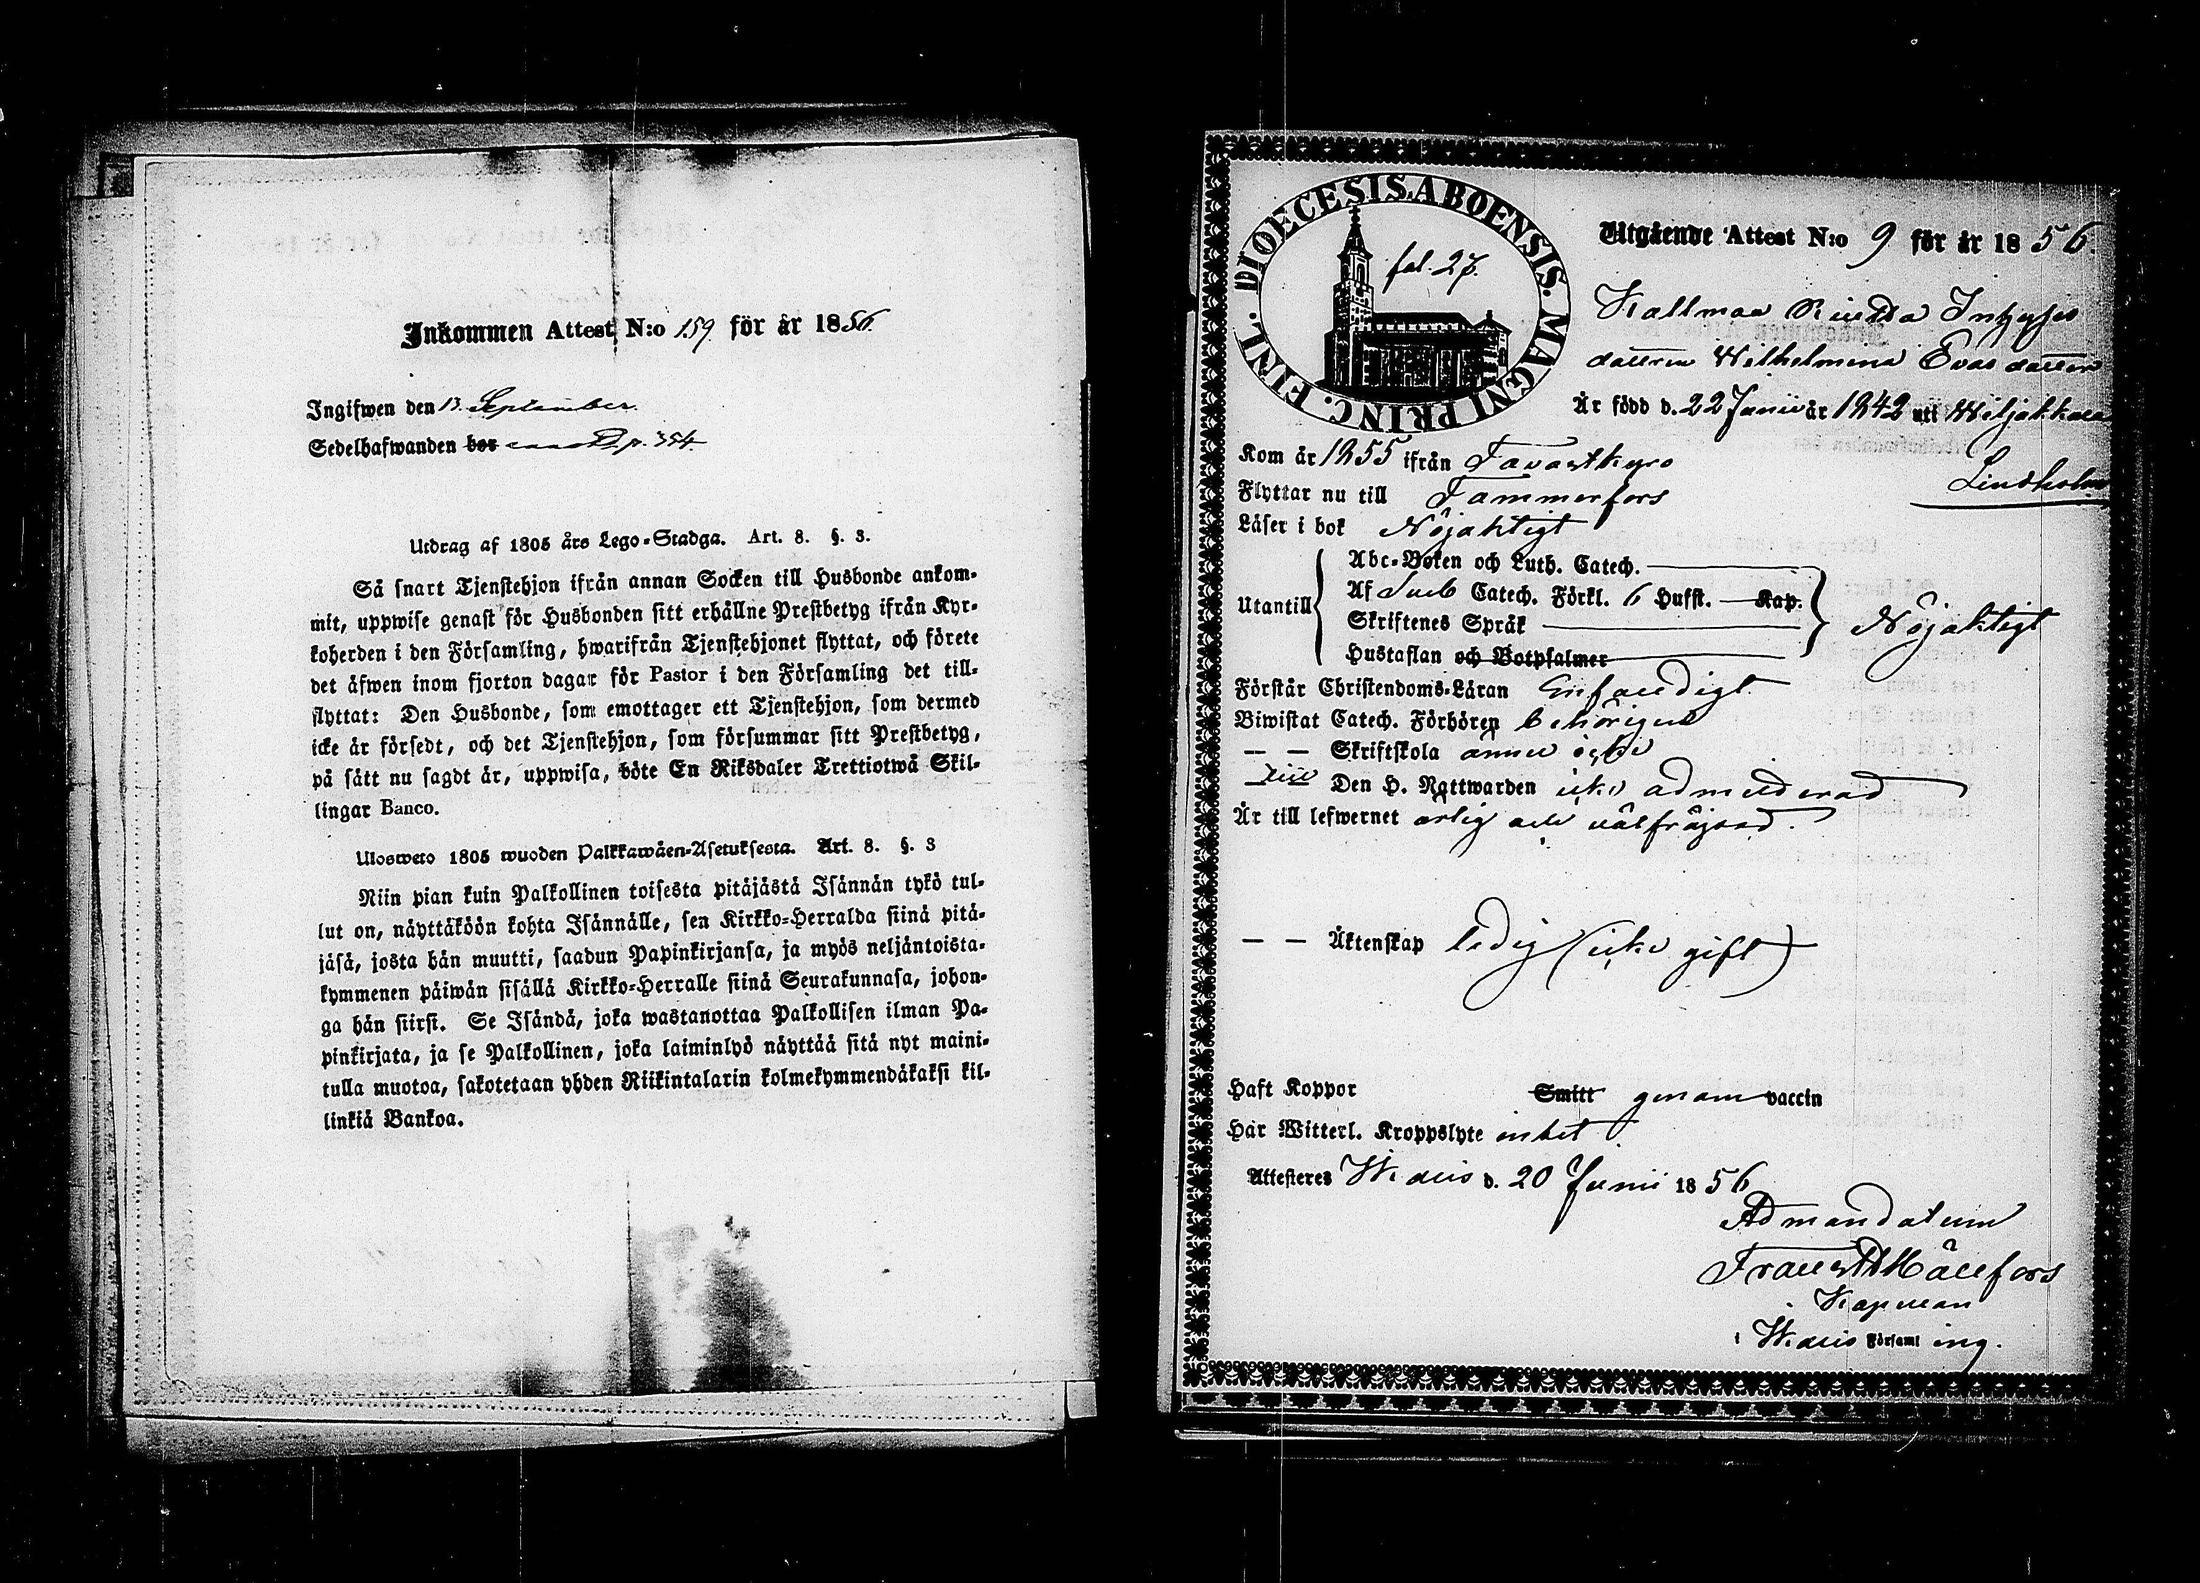 Inkommen Attest N:o 159 för år 1856.
Ingifwen den 13 September.
Sedelhafwanden bor p. 354.
Utdrag af 1805 års Lego-Stadga. Art. 8. §. 3.
Så snart Tjenstehjon ifrån annan Socken till Husbonde ankom-
mit, uppwise genast för Husbonden sitt erhållne Prestbetyg ifrån Kyr-
koherden i den Församling, hwarifrån Tjenstehjonet flyttat, och förete
det äfwen inom fjorton dagar för Pastor i den Församling det till-
flyttat: Den Husbonde, som emottager ett Tjenstehjon, som dermed
icke är försedt, och det Tjenstehjon, som försummar sitt Prestbetyg,
på sätt nu sagdt är, uppwisa, böte En Riksdaler Trettiotwå Skil-
lingar Banco.
Ulosweto 1805 wuoden Palkkawäen-Asetuksesta. Art. 8. §. 3
Niin pian kuin Palkollinen toisesta pitäjästä Isännän tykö tul-
lut on, näyttäköön kohta Isännälle, sen Kirkko-Herralda siinä pitä-
jäsä, josta hän muutti, saadun Papinkirjansa, ja myös neljäntoista-
kymmenen päiwän sisällä Kirkko-Herralle siinä Seurakunnasa, johon-
ga hän siirsi. Se Isändä, joka wastanottaa Palkollisen ilman Pa-
pinkirjata, ja se Palkollinen, joka laiminlyö näyttää sitä nyt maini-
tulla muotoa, sakotetaan yhden Riikintalarin kolmekymmendäkaksi kil-
linkiä Bankoa.
DIOECESIS. ABOENSIS. MAGNI PRINC. FINL.
fol. 27.
Utgående Attest N:o 9 för år 1856.
dattren Wilhelmina Evas datter
Är född d. 22 Junii år 1842 uti Wiljakkala
Lindholm
Kom år 1855 ifrån Tavastkyro
Flyttar nu till Tammerfors
Läser i bok Nöjaktigt
Utantill
Abc-Boken och Luth. Catech.
Af Sveb Catech. Förkl. 6 Hufst. Kap.
Skriftenes Språk
Hustaflan och Botpsalmer
Nöjaktigt
Förstår Christendoms-Läran Enfaldigt
Biwistat Catech. Förhören behörigen
— — Skriftskola ännu icke
— — Den H. Nattwarden icke admitterad
Är till lefwernet ärlig och välfräjdad.
— — Äktenskap ledig (icke gift)
Haft Koppor Smitt genom vaccin
Har Witterl. Kroppslyte intet
Attesteras d. 20 Junii 1856
Ad mandatum
Kapellan
i Församl ing.